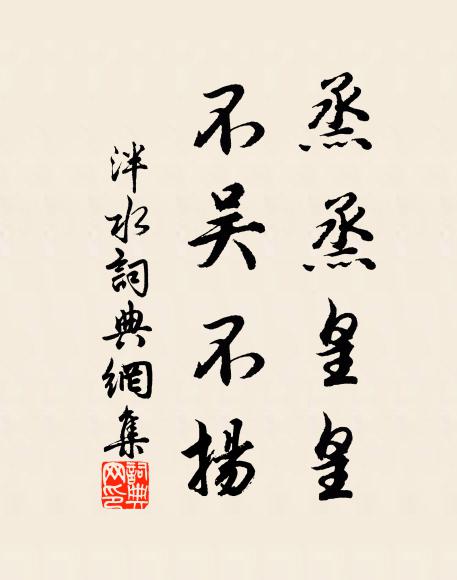 烝烝皇皇
不吴不揚
泮水詞典網集
詞典网印